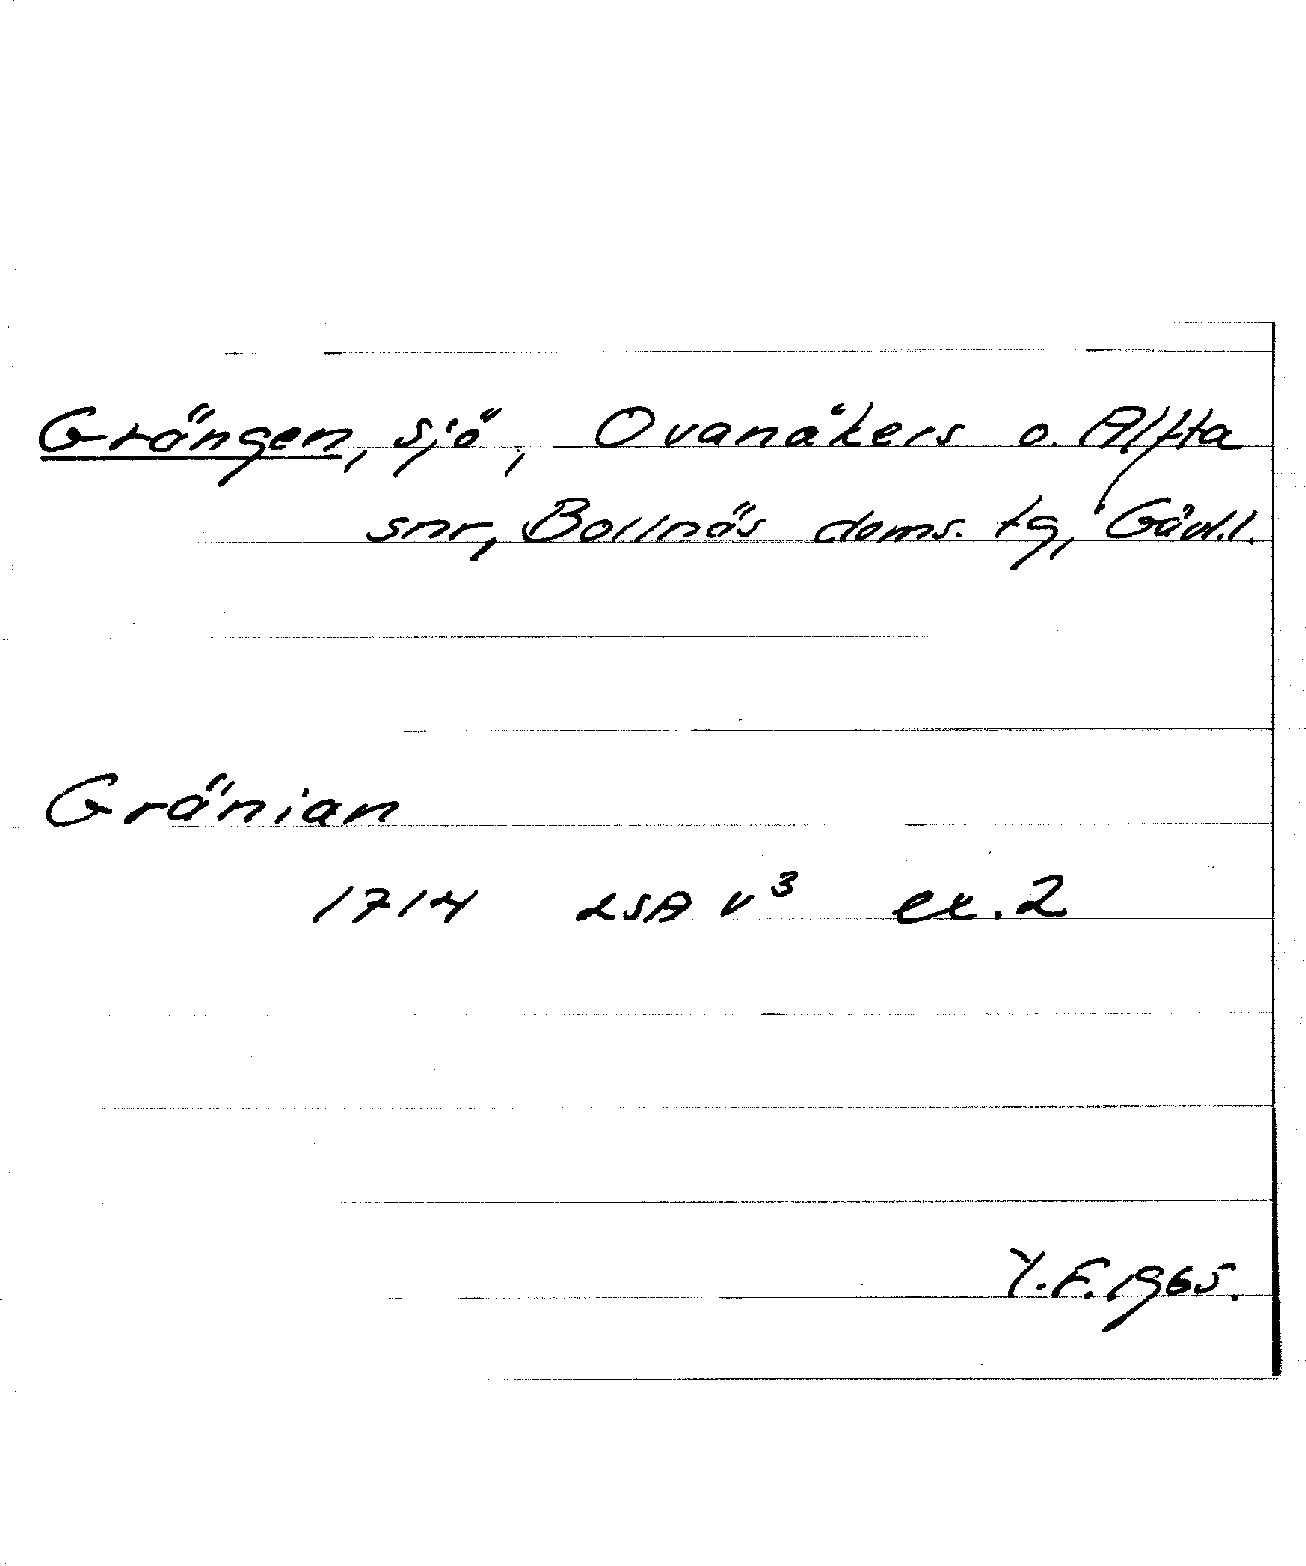 Grängen, sjö, Ovanåkers o. Alfta
snr, Bollnäs doms. tg, Gävl.l.
Gränian
1714 LSA v³ ex. 2
Y.F. 1965.